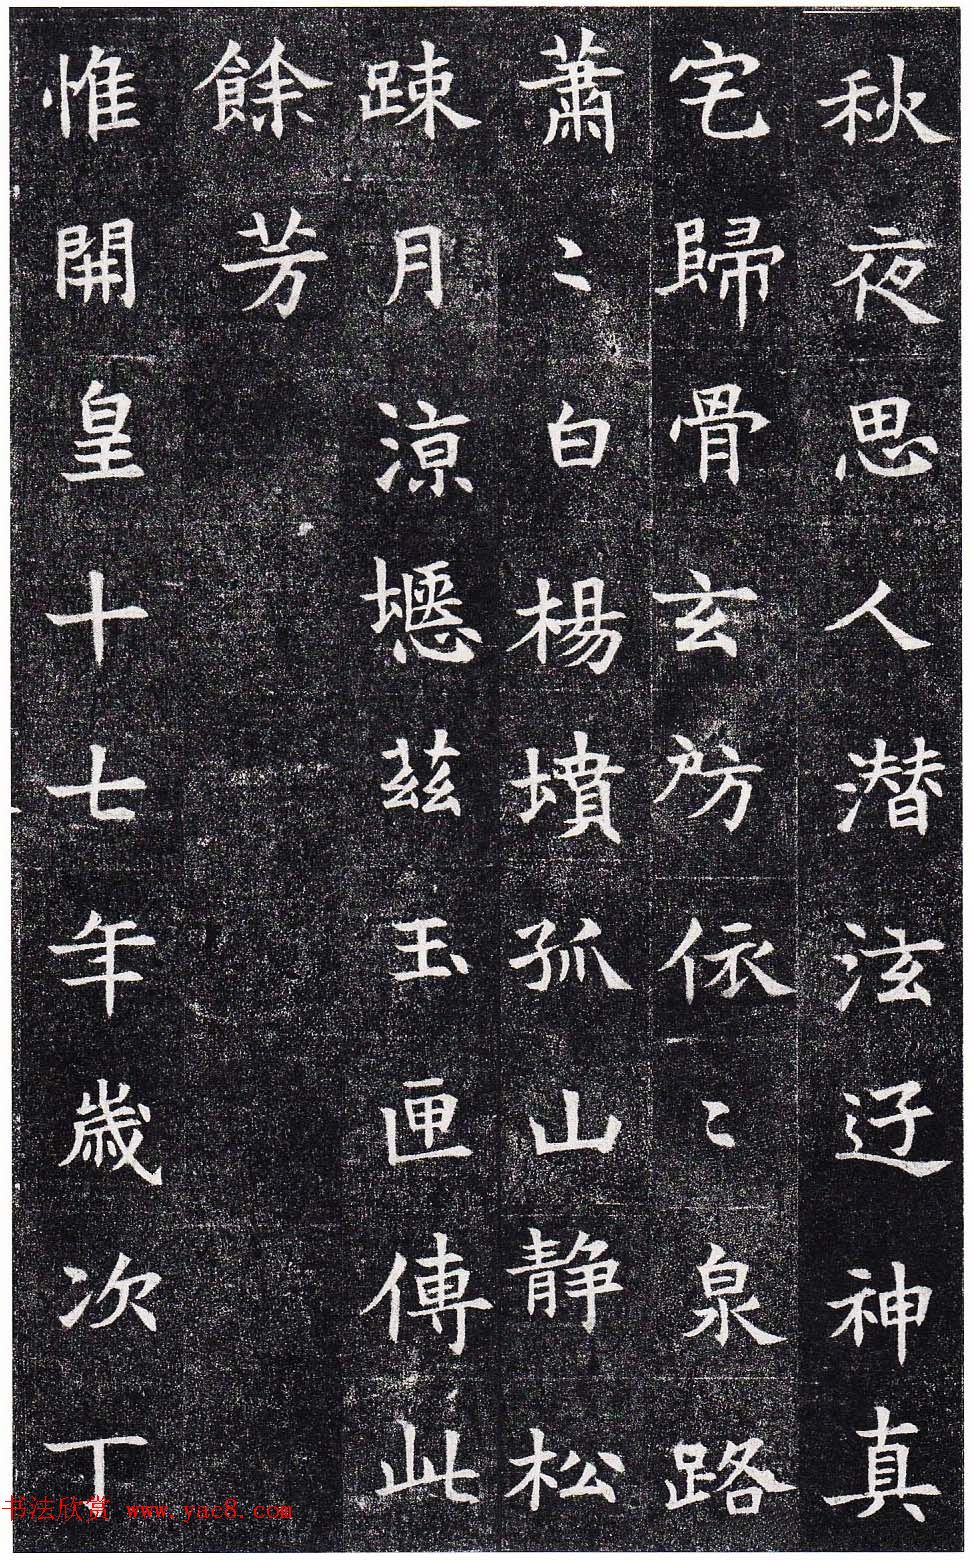 秋夜思人潛泫迂神真
宅歸骨玄房依〻泉路
蕭〻白楊墳孤山静松
踈月涼慝茲玉匣傳此
餘芳
惟開皇十七年歲次丁
书法欣赏 www.yac8.com